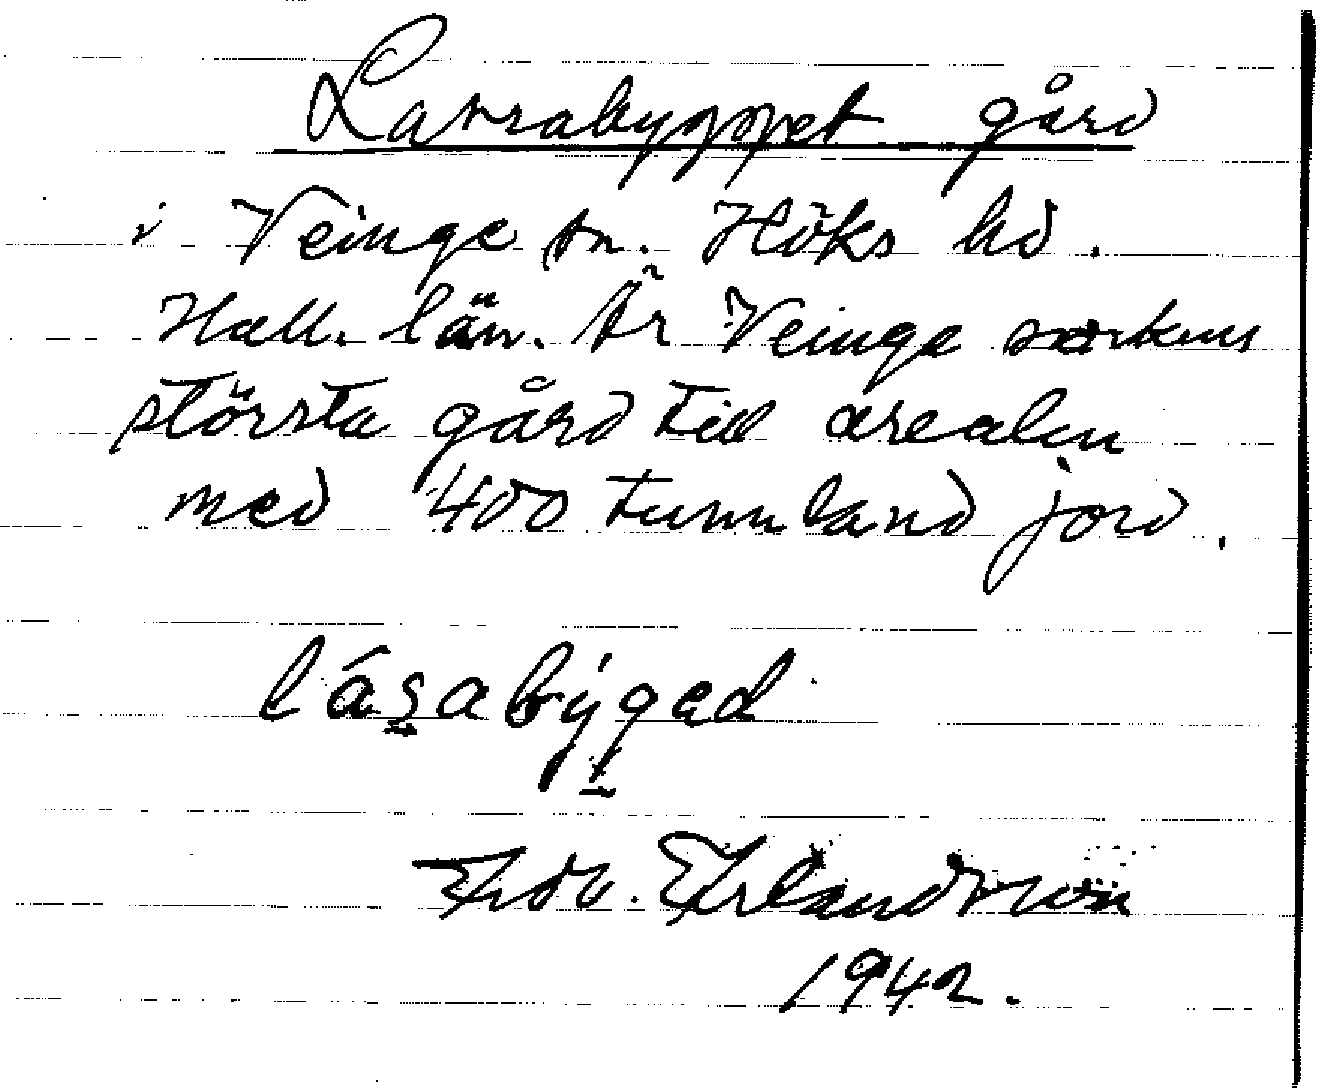 Larsabygget gård
i Veinge sn. Höks hd.
Hall. län. Är Veinge sockens
största gård till arealen
med 400 tunnland jord.
lásabýgad
Edv. Erlandsson
1942.